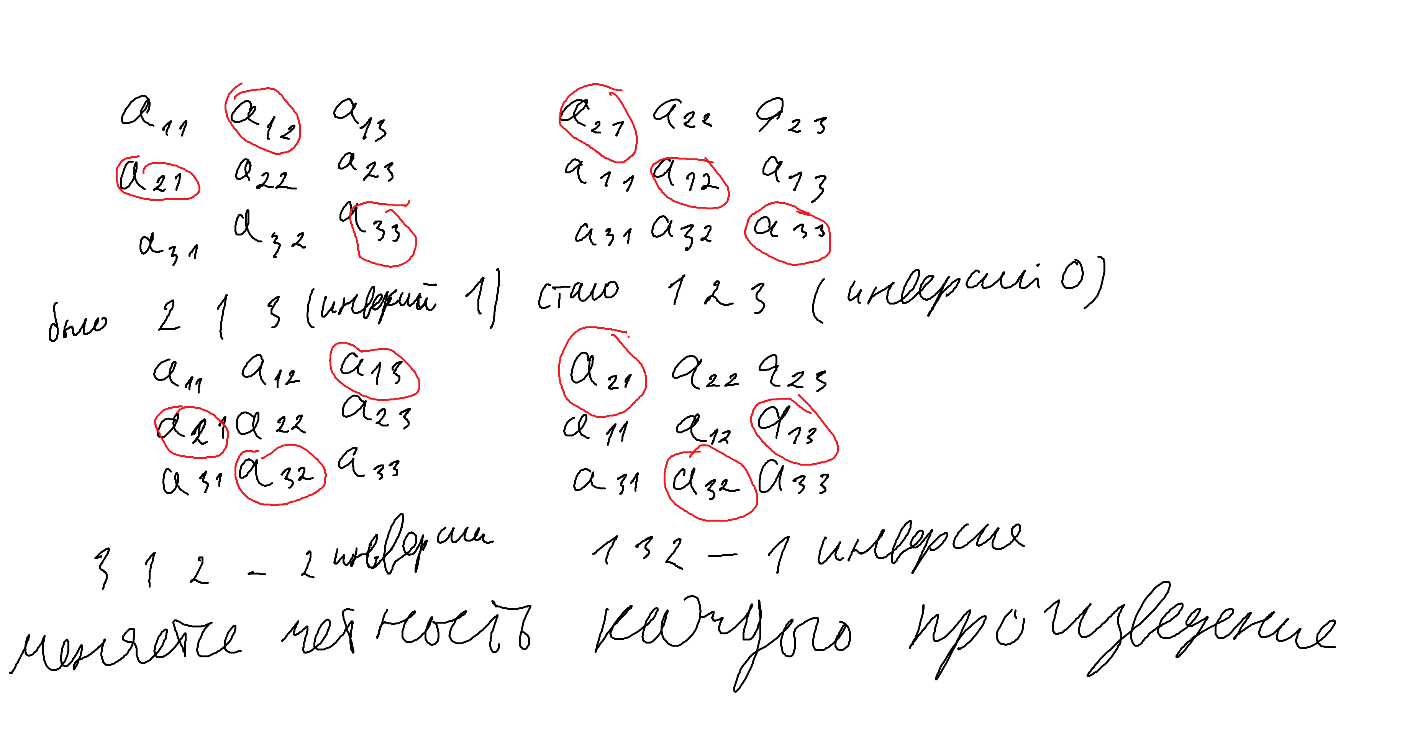 a11 a12 a13 a21 a22 a23
a21 a22 a23 a11 a12 a13
a31 a32 a33 a31 a32 a33
было 2 1 3 (инверсий 1) стало 1 2 3 (инверсий 0)
a11 a12 a13 a21 a22 a23
a21 a22 a23 a11 a12 a13
a31 a32 a33 a31 a32 a33
3 1 2 - 2 инверсии 1 3 2 - 1 инверсия
меняется четность каждого произведение